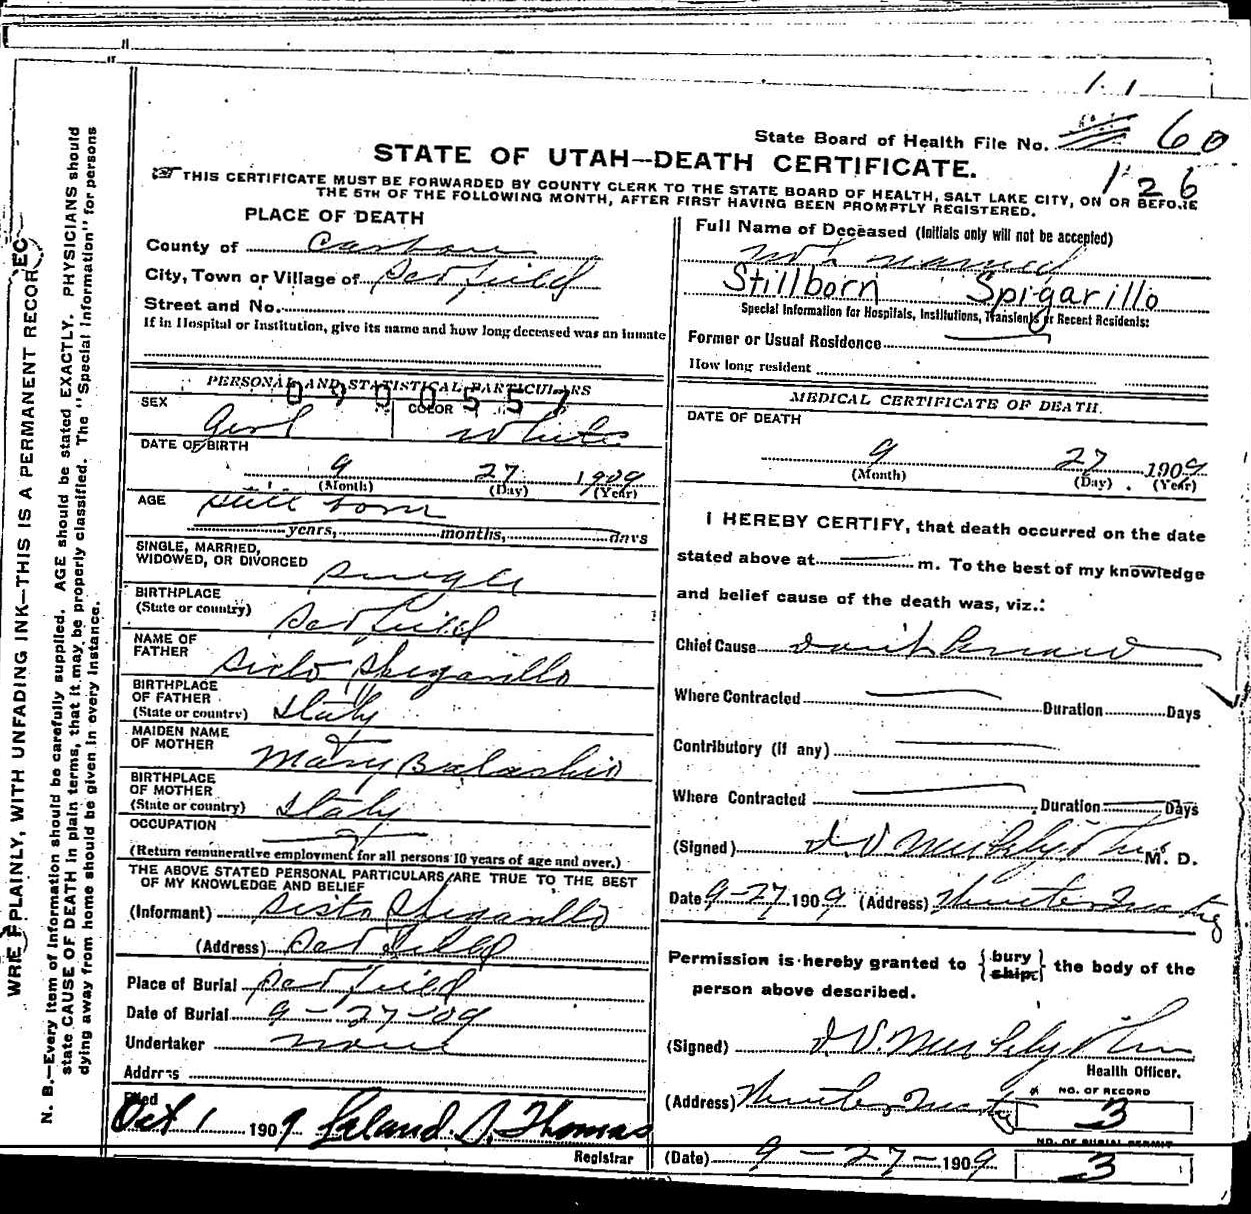 State Board of Health File No. 60
126
STATE OF UTAH—DEATH CERTIFICATE.
☞THIS CERTIFICATE MUST BE FORWARDED BY COUNTY CLERK TO THE STATE BOARD OF HEALTH, SALT LAKE CITY, ON OR BEFORE
THE 5TH OF THE FOLLOWING MONTH, AFTER FIRST HAVING BEEN PROMPTLY REGISTERED.
WRITE PLAINLY, WITH UNFADING INK—THIS IS A PERMANENT RECORD
N. B.—Every item of information should be carefully supplied. AGE should be stated EXACTLY. PHYSICIANS should
state CAUSE OF DEATH in plain terms, that it may be properly classified. The "Special Information" for persons
dying away from home should be given in every instance.
PLACE OF DEATH
County of Carbon
City, Town or Village of Scofield
Street and No.
If in Hospital or Institution, give its name and how long deceased was an inmate
PERSONAL AND STATISTICAL PARTICULARS
0900557
SEX Girl COLOR White
DATE OF BIRTH
9 27 1909
(Month) (Day) (Year)
AGE Still born
years, months, days
SINGLE, MARRIED,
WIDOWED, OR DIVORCED Single
BIRTHPLACE
(State or country) Scofield
NAME OF
FATHER Sisto Spigarillo
BIRTHPLACE
OF FATHER
(State or country) Italy
MAIDEN NAME
OF MOTHER Mary
BIRTHPLACE
OF MOTHER
(State or country) Italy
OCCUPATION
(Return remunerative employment for all persons 10 years of age and over.)
THE ABOVE STATED PERSONAL PARTICULARS ARE TRUE TO THE BEST
OF MY KNOWLEDGE AND BELIEF
(Informant) Sisto Spigarillo
(Address) Scofield
Place of Burial Scofield
Date of Burial 9-27-09
Undertaker none
Address
Filed
Oct 1 1909 Leland S. Thomas
Registrar
Full Name of Deceased (Initials only will not be accepted)
not named
Stillborn Spigarillo
Special Information for Hospitals, Institutions, Transients or Recent Residents:
Former or Usual Residence
How long resident
MEDICAL CERTIFICATE OF DEATH.
DATE OF DEATH
9 27 1909
(Month) (Day) (Year)
I HEREBY CERTIFY, that death occurred on the date
stated above at m. To the best of my knowledge
and belief cause of the death was, viz.:
Chief Cause don't know
Where Contracted Duration Days
Contributory (if any)
Where Contracted Duration Days
(Signed) M. D.
Date 9-27 1909 (Address) Winter Quarters
Permission is hereby granted to {bury
ship} the body of the
person above described.
(Signed)
Health Officer.
(Address) Winter Quarters
NO. OF RECORD
3
NO. OF BURIAL PERMIT
3
(Date) 9-27-1909
(OVER)